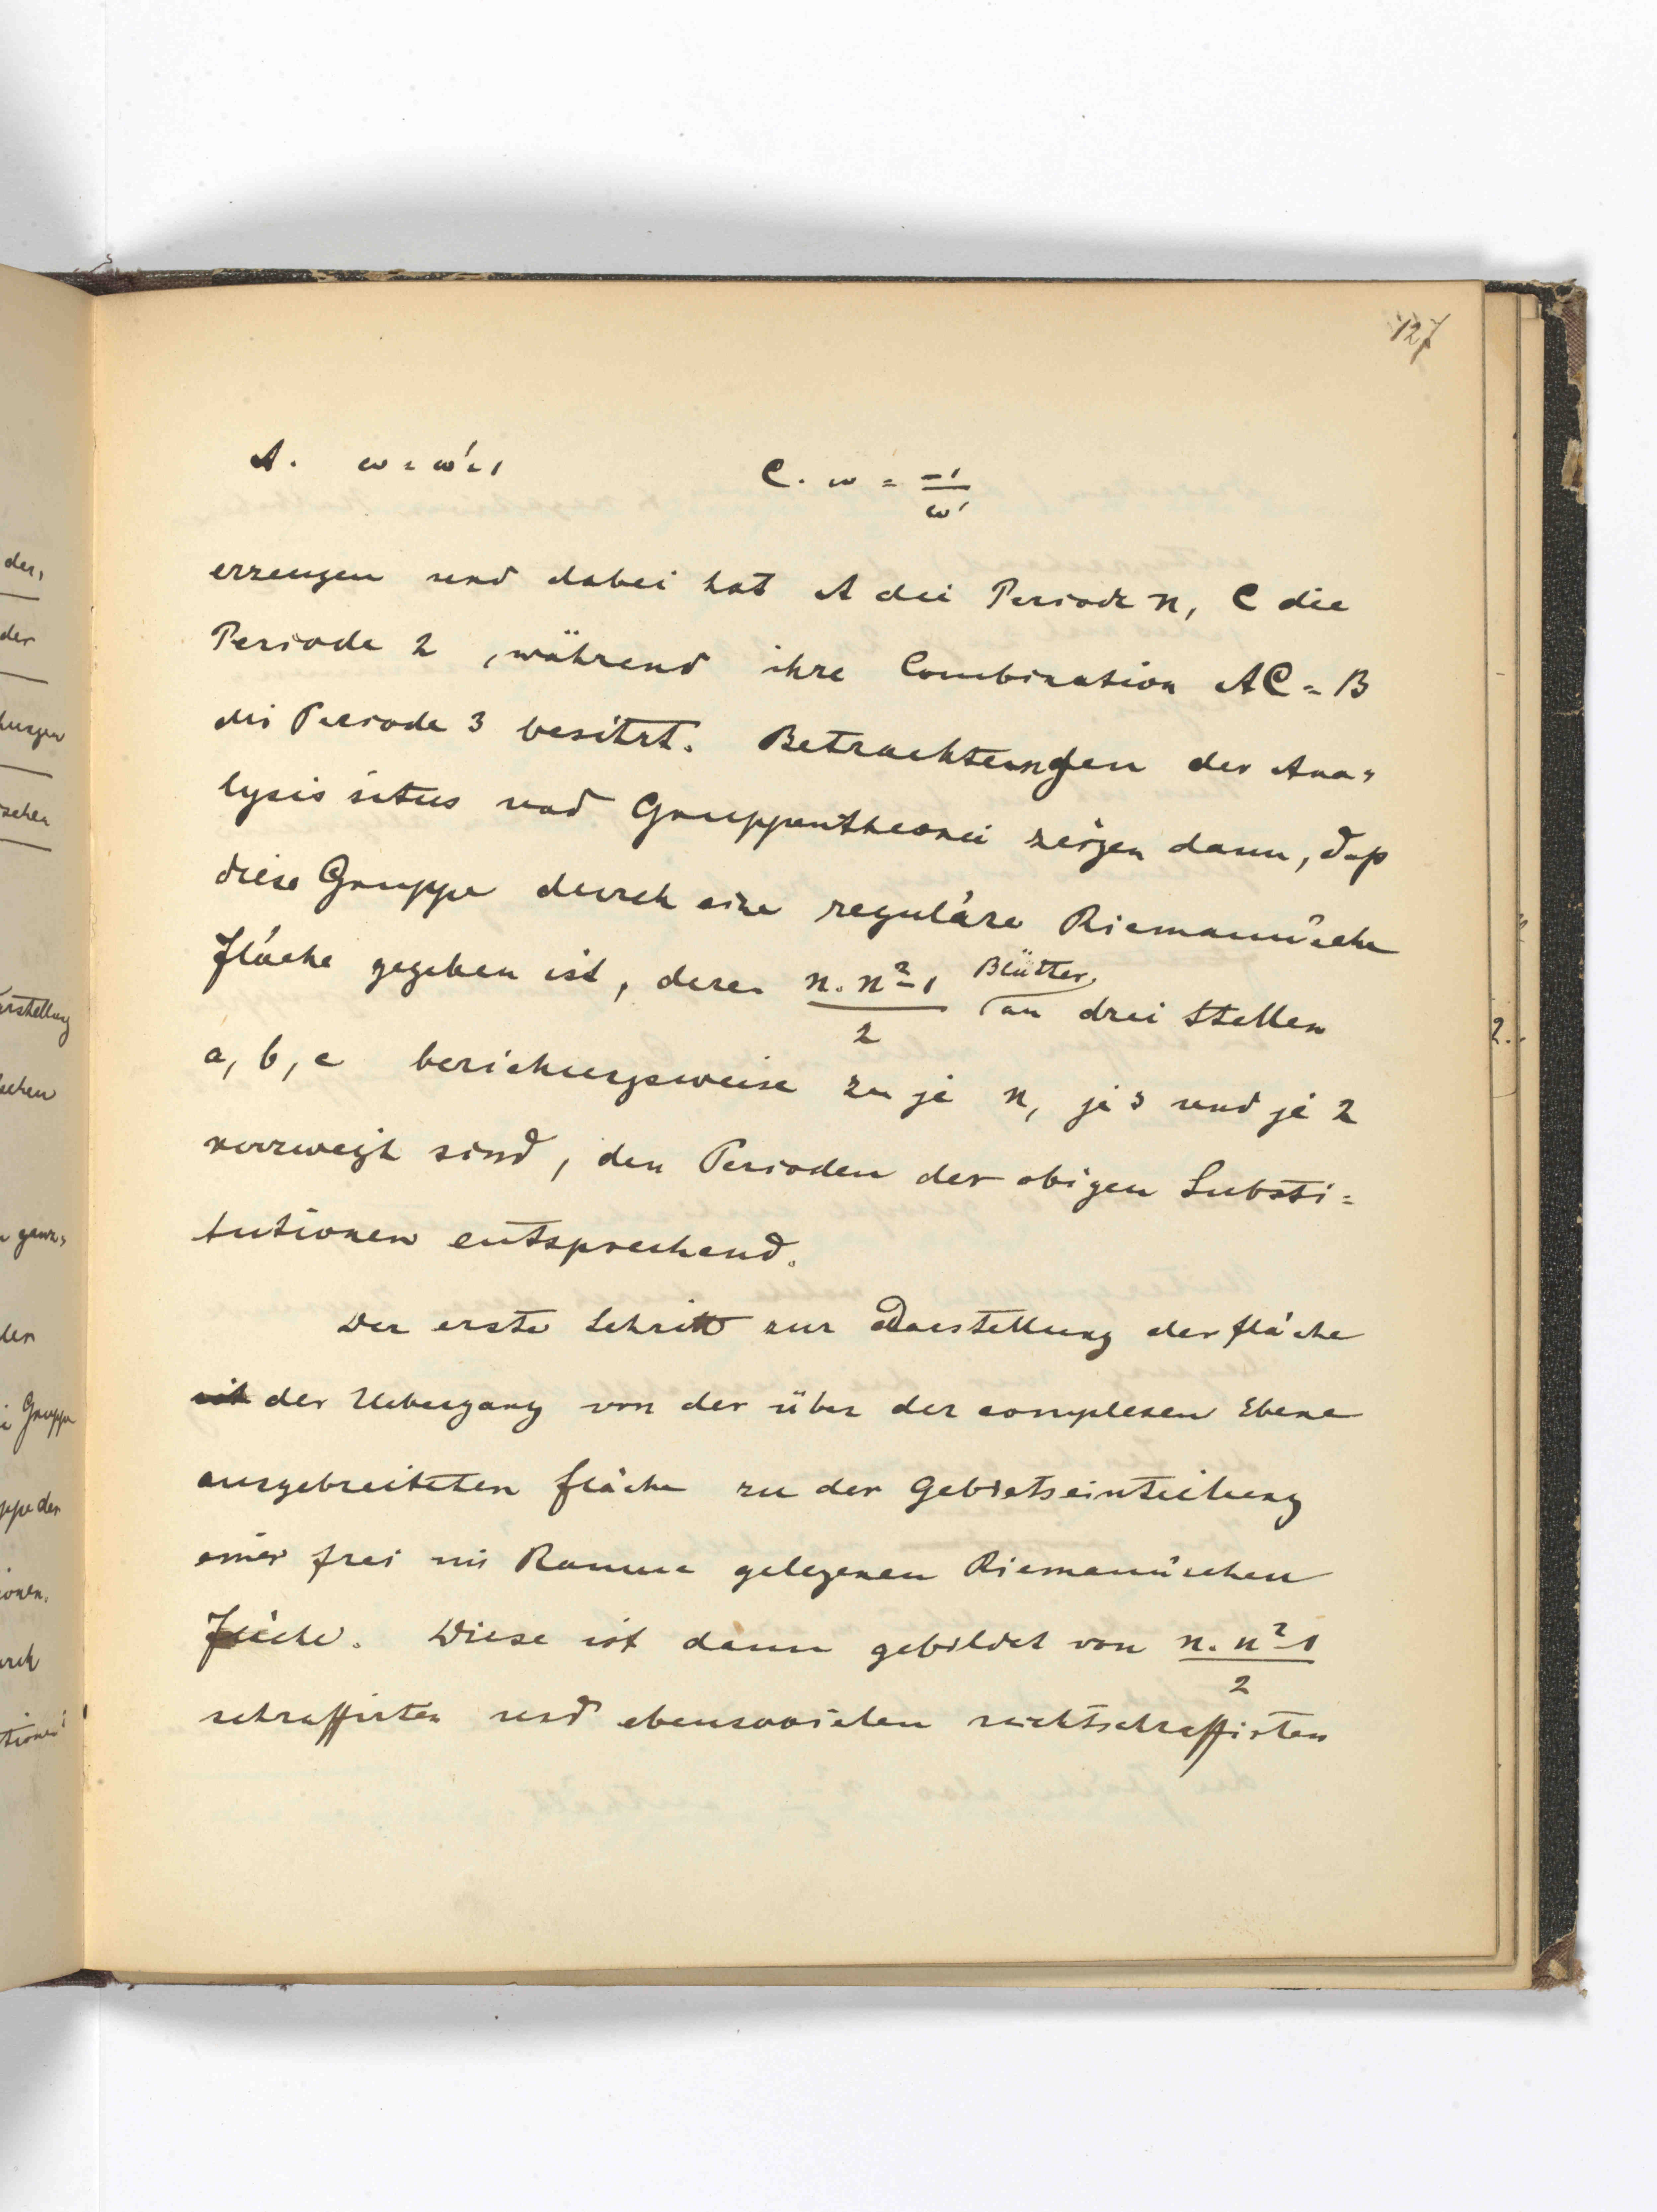 127
A. ω = ω'-1 C. ω = -1/ω'
erzeugen und dabei hat A die Periode n, C die
Periode 2, während ihre Combination AC = B
die Periode 3 besitzt. Betrachtungen der Ana=
lysis situs und Gruppentheorie zeigen dann, daß
diese Gruppe durch eine reguläre Riemann'sche
Fläche gegeben ist, deren n. n²-1 / 2 Blätter an drei Stellen
a, b, c beziehungsweise zu je n, je 3 und je 2
verzweigt sind, den Perioden der obigen Substi=
tutionen entsprechend.
Der erste Schritt zur Darstellung der Fläche
ist der Uebergang von der über der complexen Ebene
ausgebreiteten Fläche zu der Gebietseinteilung
einer frei im Raume gelegenen Riemann'schen
Fläche. Diese ist dann gebildet von n. n²-1 / 2
schraffirten und ebensovielen nichtschraffirten
der,
der
schen
Gruppe
ppe der
ionen.
2.